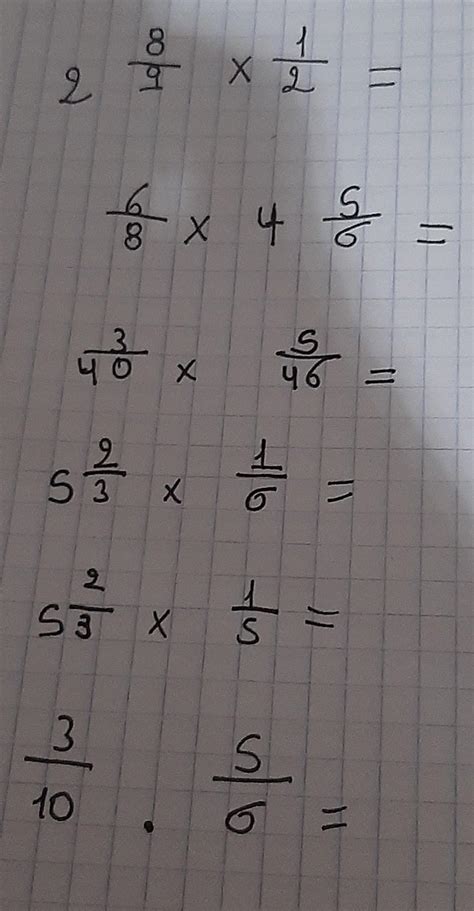 2 8/9 × 1/2 =
6/8 × 4 5/6 =
3/40 × 5/46 =
5 2/3 × 1/6 =
5 2/3 × 1/5 =
3/10 . 5/6 =